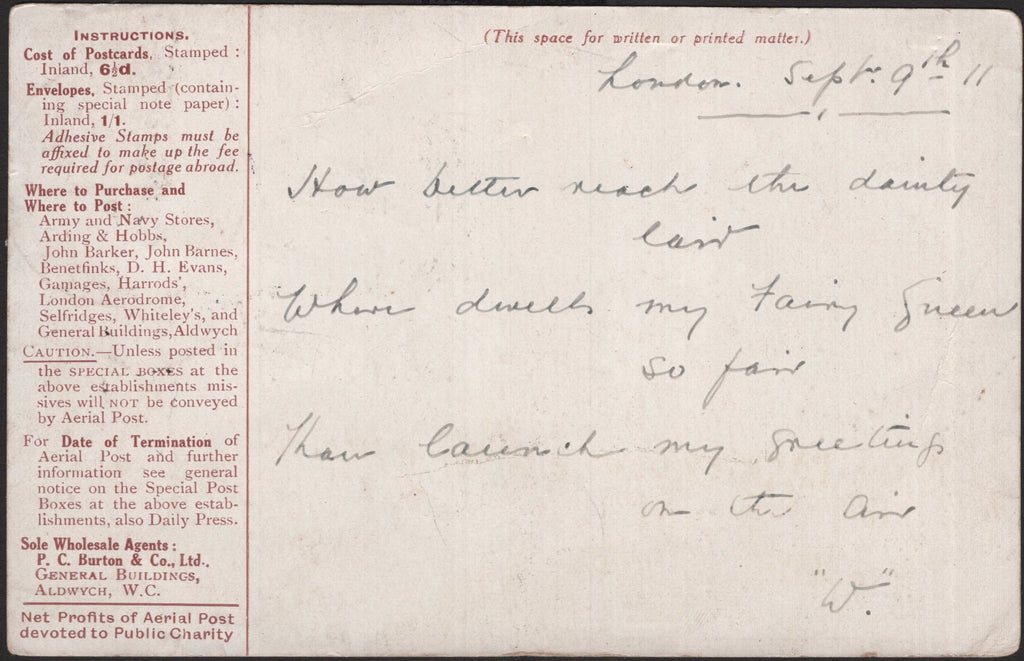 INSTRUCTIONS.
Cost of Postcards, Stamped :
Inland, 6½d.
Envelopes, Stamped (contain-
ing special note paper) :
Inland, 1/1.
Adhesive Stamps must be
affixed to make up the fee
required for postage abroad.
Where to Purchase and
Where to Post :
Army and Navy Stores,
Arding & Hobbs,
John Barker, John Barnes,
Benetfinks, D. H. Evans,
Gamages, Harrods',
London Aerodrome,
Selfridges, Whiteley's, and
General Buildings, Aldwych
CAUTION.—Unless posted in
the SPECIAL BOXES at the
above establishments mis-
sives will NOT be conveyed
by Aerial Post.
For Date of Termination of
Aerial Post and further
information see general
notice on the Special Post
Boxes at the above estab-
lishments, also Daily Press.
Sole Wholesale Agents :
P. C. Burton & Co., Ltd.,
GENERAL BUILDINGS,
ALDWYCH, W.C.
Net Profits of Aerial Post
devoted to Public Charity
(This space for written or printed matter.)
London. Sept. 9th 11
How better reach the dainty
lair
Where dwells my Fairy Queen
so fair
Than launch my greetings
on the air
"W."